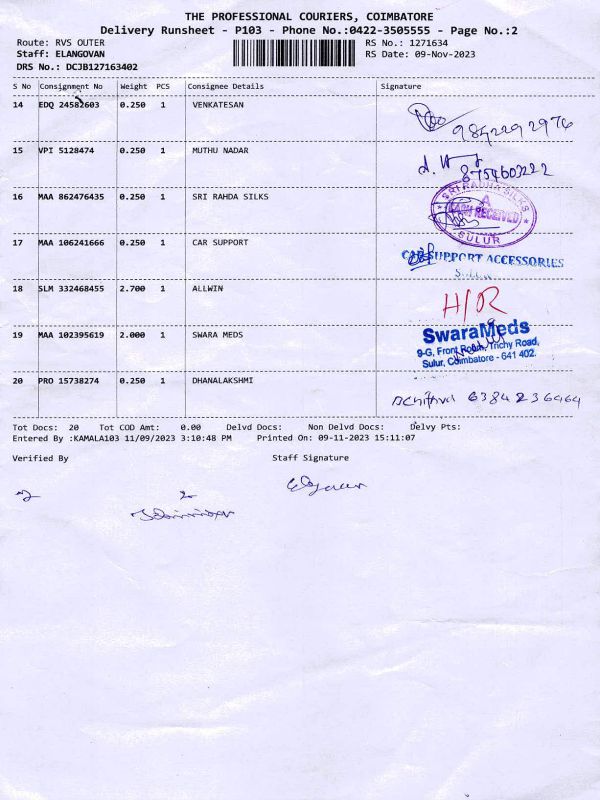 THE PROFESSIONAL COURIERS, COIMBATORE
Delivery Runsheet - P103 - Phone No.:0422-3505555 - Page No.:2
Route: RVS OUTER RS No.: 1271634
Staff: ELANGOVAN RS Date: 09-Nov-2023
DRS No.: DCJB127163402
S No Consignment No Weight PCS Consignee Details Signature
14 EDQ 24582603 0.250 1 VENKATESAN
9842292976
15 VPI 5128474 0.250 1 MUTHU NADAR
8754603222
16 MAA 862476435 0.250 1 SRI RAHDA SILKS
SRI RADHA SILKS
CASH RECEIVED
SULUR
17 MAA 106241666 0.250 1 CAR SUPPORT
CAR SUPPORT ACCESSORIES
18 SLM 332468455 2.700 1 ALLWIN
H/R
19 MAA 102395619 2.000 1 SWARA MEDS
SwaraMeds
9-G, Front Room, Trichy Road,
Sulur, Coimbatore - 641 402.
20 PRO 15738274 0.250 1 DHANALAKSHMI
6384236464
Tot Docs: 20 Tot COD Amt: 0.00 Delvd Docs: Non Delvd Docs: Delvy Pts:
Entered By :KAMALA103 11/09/2023 3:10:48 PM Printed On: 09-11-2023 15:11:07
Verified By Staff Signature